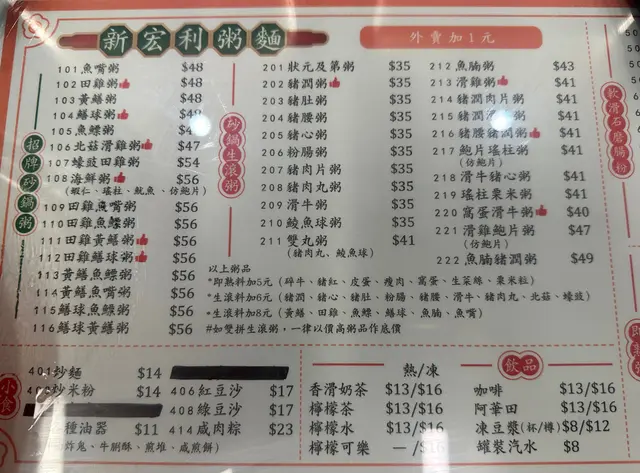 新宏利粥麵
外賣加1元
招牌砂鍋粥
101 魚嘴粥 $48
102 田雞粥 $48
103 黃鱔粥 $48
104 鱔球粥
105 魚鰾粥
106 北菇滑雞粥 $47
107 蠔豉田雞粥 $54
108 海鮮粥 $56
(蝦仁、瑤柱、魷魚、仿鮑片)
109 田雞魚嘴粥 $56
110 田雞魚鰾粥 $56
111 田雞黃鱔粥 $56
112 田雞鱔球粥 $56
113 黃鱔魚鰾粥 $56
114 黃鱔魚嘴粥 $56
115 鱔球魚鰾粥 $56
116 鱔球黃鱔粥 $56
砂鍋生滾粥
201 狀元及第粥 $35
202 豬潤粥 $35
203 豬肚粥 $35
204 豬腰粥 $35
205 豬心粥 $35
206 粉腸粥 $35
207 豬肉片粥 $35
208 豬肉丸粥 $35
209 滑牛粥 $35
210 鯪魚球粥 $35
211 雙丸粥 $41
(豬肉丸、鯪魚球)
212 魚腩粥 $43
213 滑雞粥 $41
214 豬潤肉片粥 $41
215 豬潤 粥 $41
216 豬腰豬潤粥 $41
217 鮑片瑤柱粥 $41
(仿鮑片)
218 滑牛豬心粥 $41
219 瑤柱粟米粥 $41
220 窩蛋滑牛粥 $40
221 滑雞鮑片粥 $47
(仿鮑片)
222 魚腩豬潤粥 $49
以上粥品
*即熟料加5元 (碎牛、豬紅、皮蛋、瘦肉、窩蛋、生菜絲、粟米粒)
*生滾料加6元 (豬潤、豬心、豬肚、粉腸、豬腰、滑牛、豬肉丸、北菇、蠔豉)
*生滾料加8元 (黃鱔、田雞、魚鰾、鱔球、魚腩、魚嘴)
#如雙拼生滾粥，一律以價高粥品作底價
軟滑石磨腸粉
小食
401 炒麵 $14
炒米粉 $14
種油器 $11
炸鬼、牛脷酥、煎堆、咸煎餅)
406 紅豆沙 $17
408 綠豆沙 $17
414 咸肉粽 $23
飲品
熱/凍
香滑奶茶 $13/$16
檸檬茶 $13/$16
檸檬水 $13/$16
檸檬可樂 —/$16
咖啡 $13/$16
阿華田 $13/$16
凍豆漿(杯/樽) $8/$12
罐裝汽水 $8